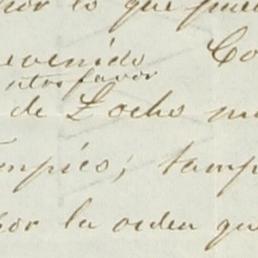 por lo que
evenido Co
ntro favor
de Locho
impíos; tamp
por la orden qu